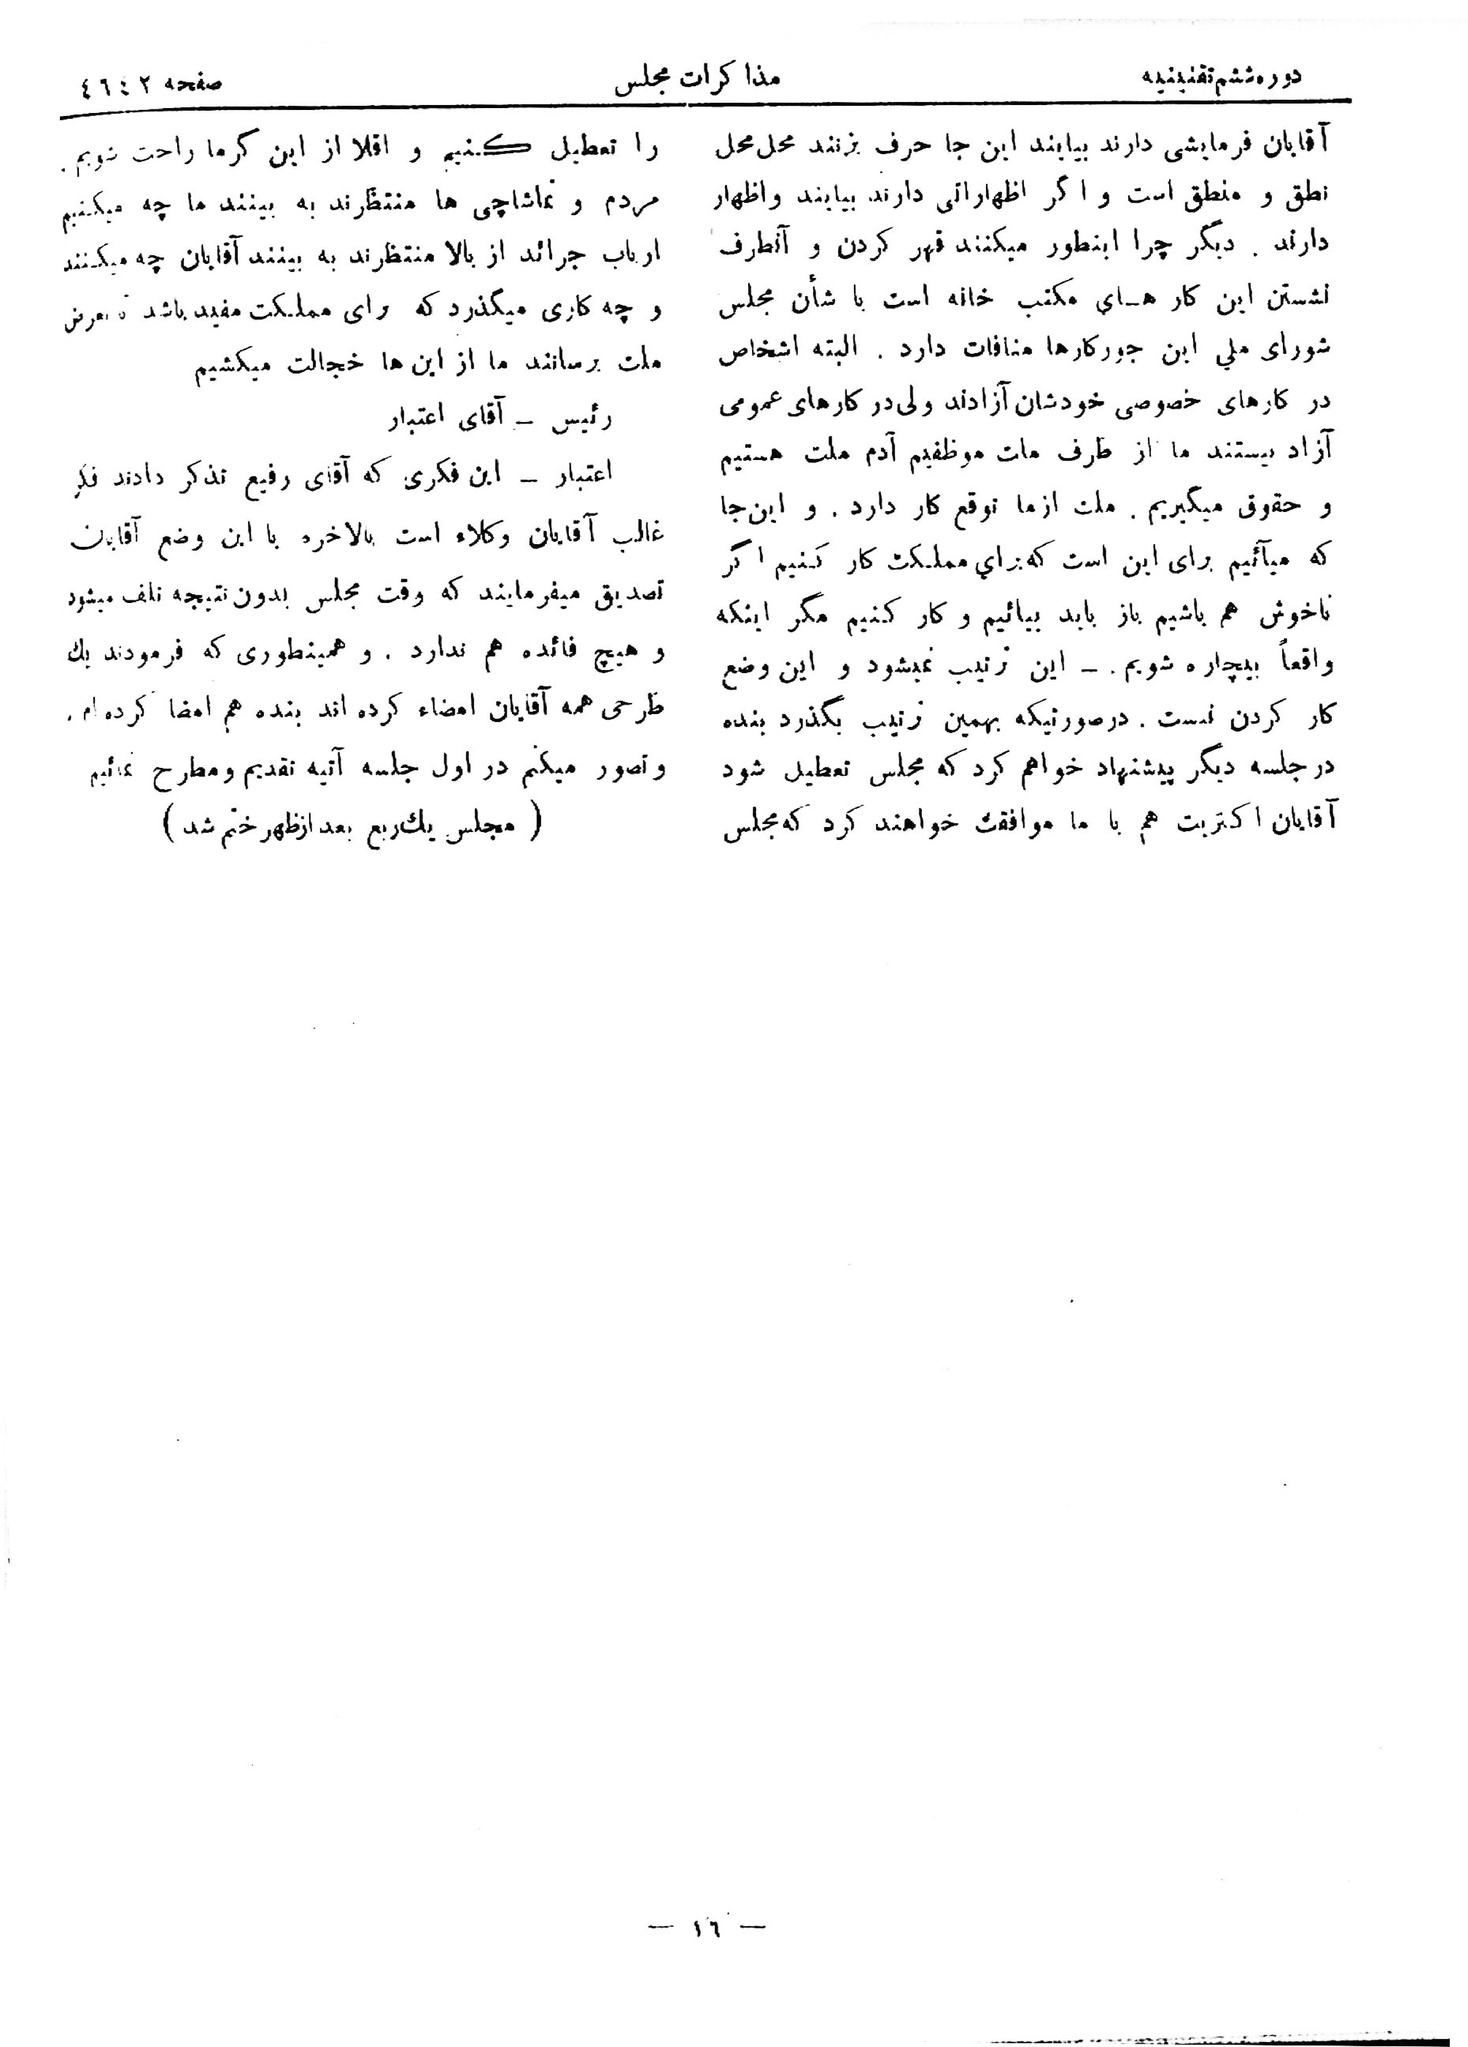 دوره ششم تقنینیه
مذاکرات مجلس
صفحه ٤٦٤٢
آقایان فرمایشی دارند بیایند این جا حرف بزنند محل محل
نطق و منطق است و اگر اظهاراتی دارند بیایند و اظهار
دارند . دیگر چرا اینطور میکنند قهر کردن و آنطرف
نشستن این کار های مکتب خانه است با شأن مجلس
شورای ملی این جور کارها منافات دارد . البته اشخاص
در کارهای خصوصی خودشان آزادند ولی در کارهای عمومی
آزاد نیستند ما از طرف ملت موظفیم آدم ملت هستیم
و حقوق میگیریم . ملت از ما توقع کار دارد . و این جا
که میآئیم برای این است که برای مملکت کار کنیم اگر
ناخوش هم باشیم باز باید بیائیم و کار کنیم مگر اینکه
واقعاً بیچاره شویم . ـ این ترتیب نمیشود و این وضع
کار کردن نیست . در صورتیکه بهمین ترتیب بگذرد بنده
در جلسه دیگر پیشنهاد خواهم کرد که مجلس تعطیل شود
آقایان اکثریت هم با ما موافقت خواهند کرد که مجلس
را تعطیل کنیم و اقلا از این گرما راحت شویم .
مردم و تماشاچی ها منتظرند به بینند ما چه میکنیم
ارباب جرائد از بالا منتظرند به بینند آقایان چه میکنند
و چه کاری میگذرد که برای مملکت مفید باشد تا بعرض
ملت برسانند ما از این ها خجالت میکشیم
رئیس ـ آقای اعتبار
اعتبار ـ این فکری که آقای رفیع تذکر دادند فکر
غالب آقایان وکلاء است بالاخره با این وضع آقایان
تصدیق میفرمایند که وقت مجلس بدون نتیجه تلف میشود
و هیچ فائده هم ندارد . و همینطوری که فرمودند یك
طرحی همه آقایان امضاء کرده اند بنده هم امضا کرده ام .
و تصور میکنم در اول جلسه آتیه تقدیم و مطرح نمائیم
( مجلس یك ربع بعد از ظهر ختم شد )
— ١٦ —